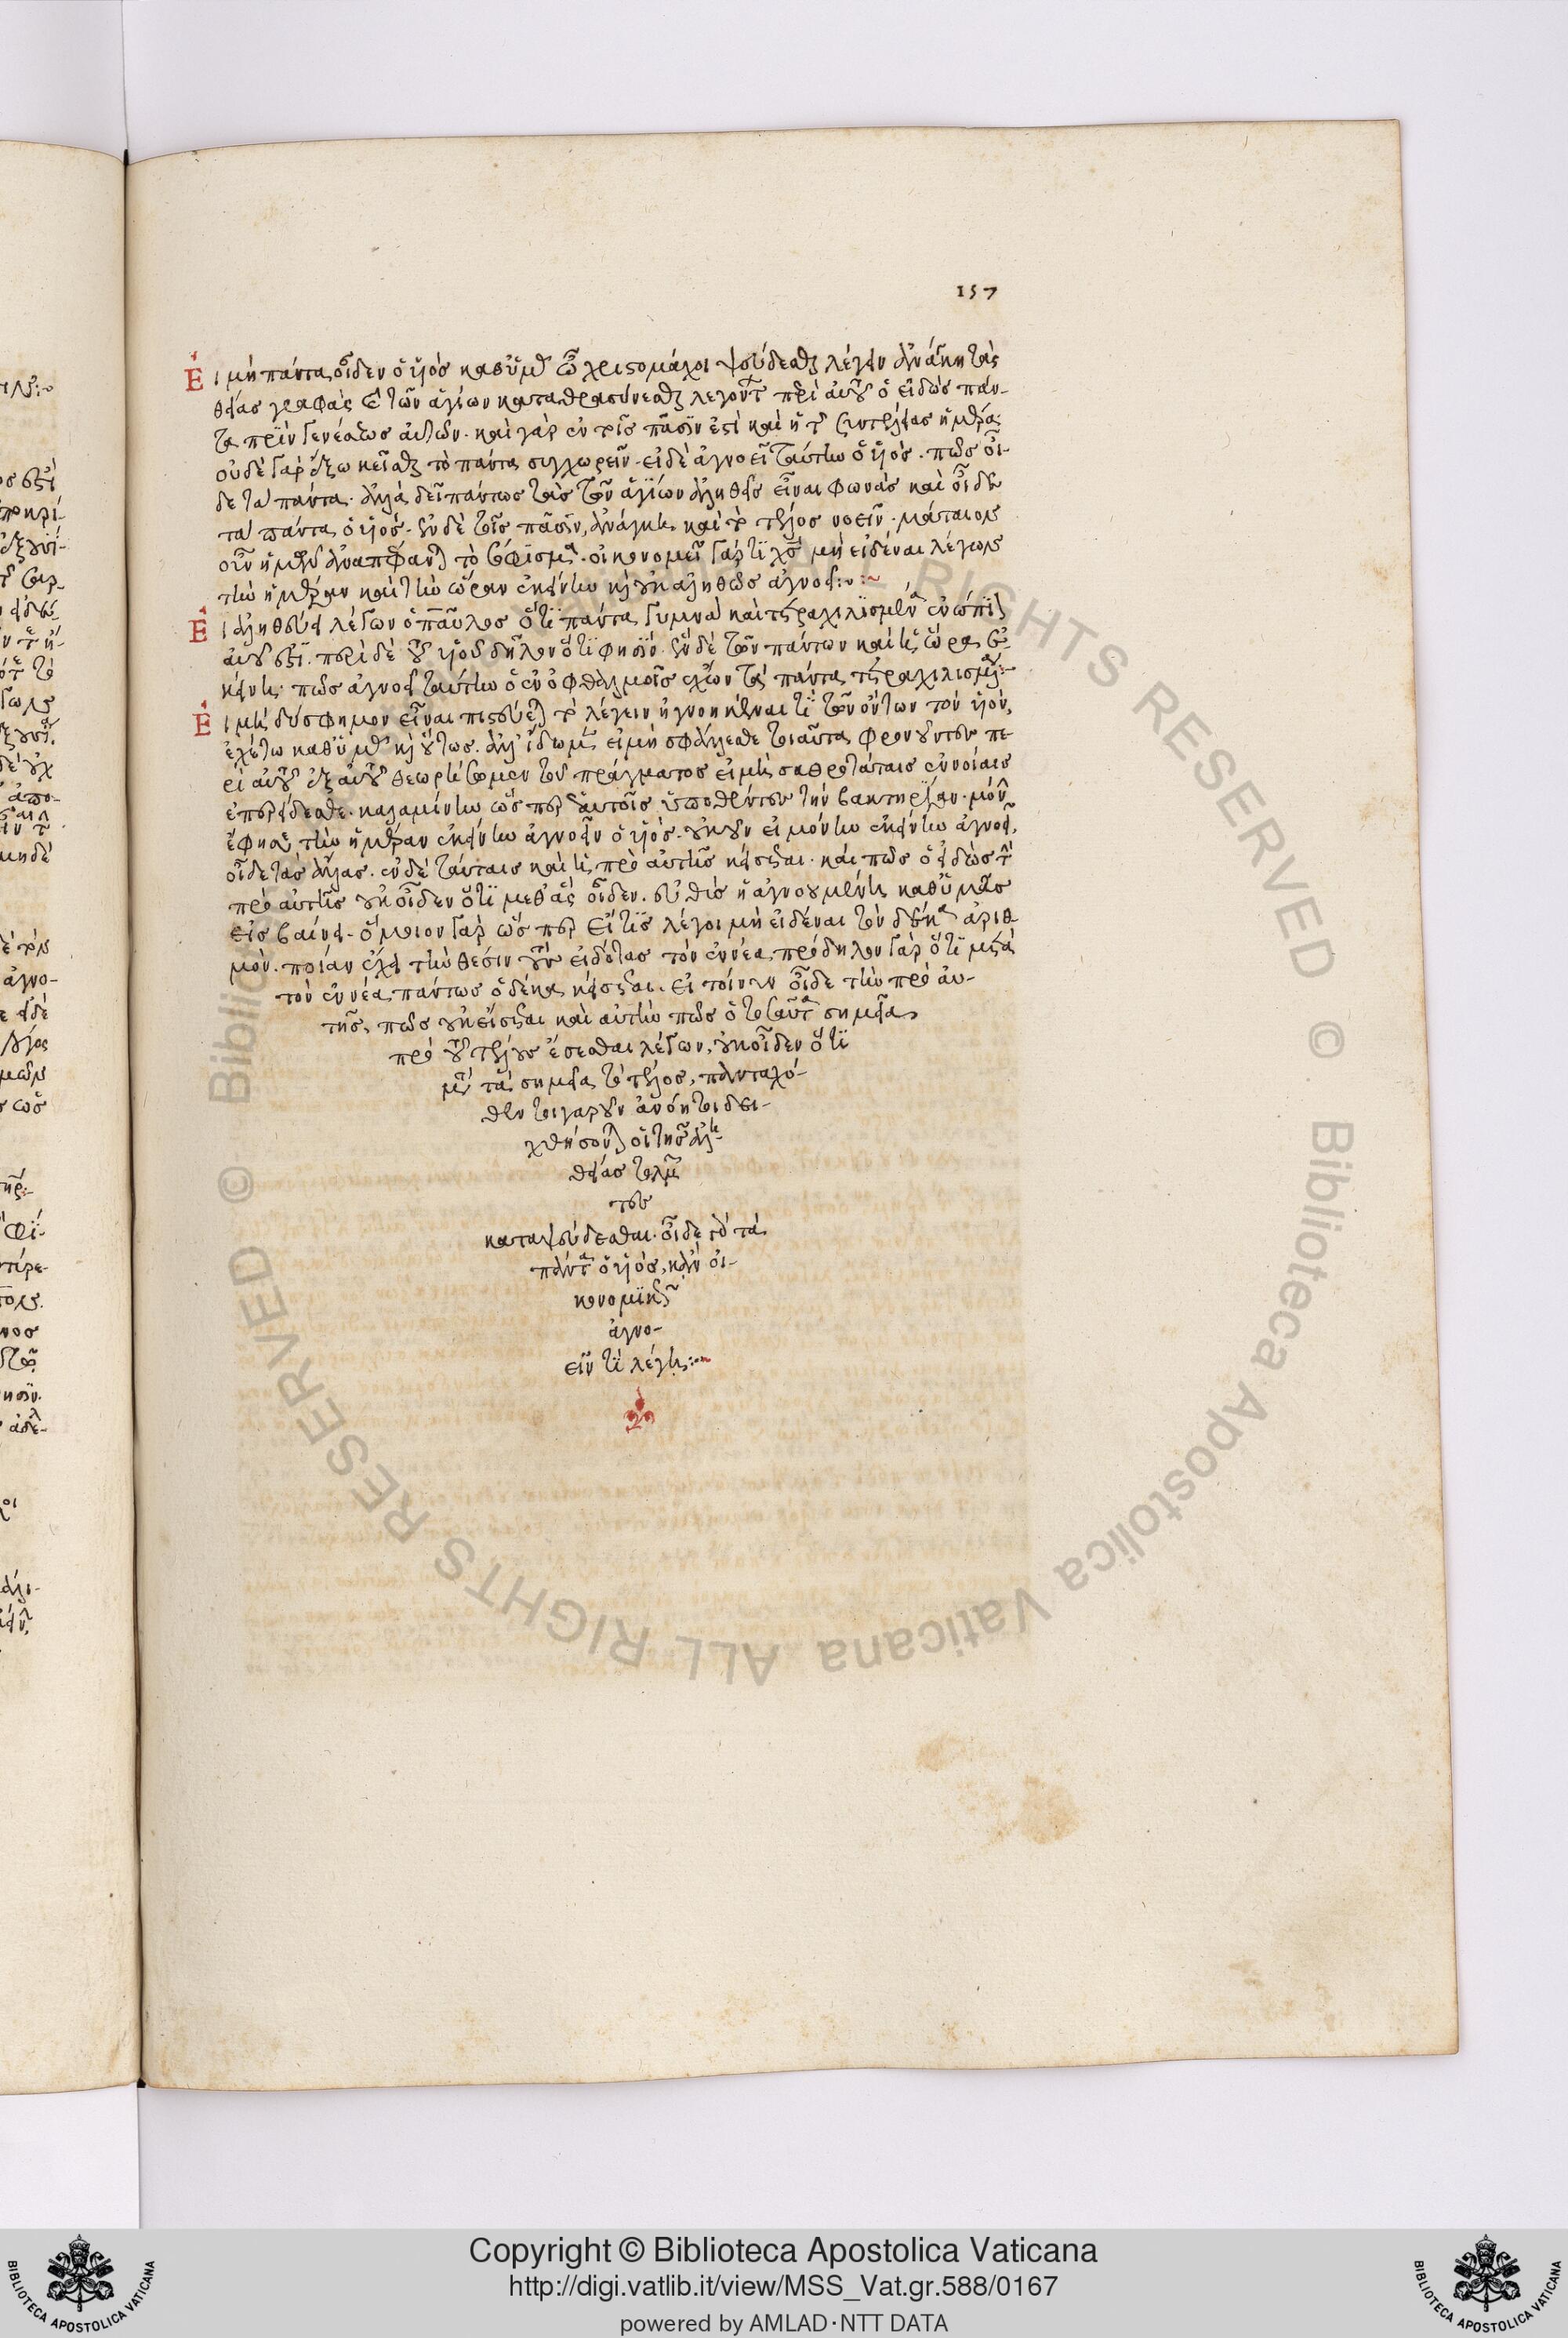 157
Εἰ μὴ πάντα οἶδεν ὁ υἱὸς καθ' ὑμᾶς ὦ χριστομάχοι ψεύδεσθαι λέγειν ἀνάγκη τὰς
θείας γραφὰς καὶ τῶν ἁγίων καταθρασύνεσθαι λεγούσας περὶ αὐτοῦ ὁ εἰδὼς πάν-
τα πρὶν γενέσεως αὐτῶν. καὶ γὰρ ἐν τοῖς πᾶσίν ἐστι καὶ ἡ τῆς συντελείας ἡμέρα.
οὐδὲ γὰρ ἔξω κεῖσθαι τὸ πάντα συγχωρεῖ. εἰ δὲ ἀγνοεῖ ταύτην ὁ υἱὸς. πῶς οἶ-
δε τὰ πάντα. ἀλλὰ δεῖ πάντως τὰς τῶν ἁγίων ἀληθεῖς εἶναι φωνὰς καὶ οἶδεν
τὰ πάντα ὁ υἱός. ἐν δὲ τοῖς πᾶσιν, ἀνάγκη καὶ τὸ τέλος νοεῖν. μάταιον
οὖν ἡμῖν ἀναπέφανται τὸ σόφισμα. οἰκονομεῖ γάρ τι χριστὸς μὴ εἰδέναι λέγων
τὴν ἡμέραν καὶ τὴν ὥραν ἐκείνην καὶ οὐκ ἀληθῶς ἀγνοεῖ:~
Εἰ ἀληθεύει λέγων ὁ παῦλος ὅτι πάντα γυμνὰ καὶ τετραχηλισμένα ἐνώπιον
αὐτοῦ ἐστι. περὶ δὲ τοῦ υἱοῦ δηλονότι φησίν. ἓν δὲ τῶν πάντων καὶ ἡ ὥρα ἐ-
κείνη. πῶς ἀγνοεῖ ταύτην ὁ ἐν ὀφθαλμοῖς ἔχων τὰ πάντα τετραχηλισμένα:~
Εἰ μὴ δύσφημον εἶναι πιστεύεται τὸ λέγειν ἠγνοηκέναι τι τῶν ὄντων τὸν υἱόν,
ἐχέτω καθ' ὑμᾶς καὶ οὕτως. ἀλλ' ἴδωμεν εἰ μὴ σφάλλεσθε τοιαῦτα φρονοῦντες πε-
ρὶ αὐτοῦ ἐξ αὐτοῦ θεωρήσωμεν τοῦ πράγματος εἰ μὴ σαθροτάταις ἐννοίαις
ἐπερείδεσθε. καλαμίνην ὥσπερ ἑαυτοῖς ὑποθέντες τὴν βακτηρίαν. μόνην
ἔφησε τὴν ἡμέραν ἐκείνην ἀγνοεῖν ὁ υἱός. οὐκοῦν εἰ μόνην ἐκείνην ἀγνοεῖ,
οἶδε τὰς ἄλλας. ἐν δὲ ταύταις καὶ ἡ πρὸ αὐτῆς κείσεται. καὶ πῶς ὁ εἰδὼς τὴν
πρὸ αὐτῆς οὐκ οἶδεν ὅτι μεθ' ἃς οἶδεν. εὐθὺς ἡ ἀγνοουμένη καθ' ὑμᾶς
εἰσβαίνει. ὅμοιον γὰρ ὥσπερ εἴ τις λέγοι μὴ εἰδέναι τὸν δέκα ἀριθ-
μόν. ποίαν ἔχει τὴν θέσιν τοὺς εἰδότας τὸν ἐννέα. πρόδηλον γὰρ ὅτι μετὰ
τὸν ἐννέα πάντως ὁ δέκα κείσεται. εἰ τοίνυν οἶδε τὴν πρὸ αὐ-
τῆς, πῶς οὐκ εἴσεται καὶ αὐτὴν πῶς ὁ τοσαῦτα σημεῖα
πρὸ τοῦ τέλους ἔσεσθαι λέγων, οὐκ οἶδεν ὅτι
μετὰ τὰ σημεῖα τὸ τέλος, πανταχό-
θεν τοιγαροῦν ἀνόητοι δει-
χθήσονται οἱ τῆς ἀλη-
θείας τολμῶν
τες
καταψεύδεσθαι. οἶδε δὲ τὰ
πάντα ὁ υἱός, κἂν οἰ-
κονομικῶς
ἀγνο-
εῖν τι λέγῃ:~
Copyright © Biblioteca Apostolica Vaticana
http://digi.vatlib.it/view/MSS_Vat.gr.588/0167
powered by AMLAD·NTT DATA